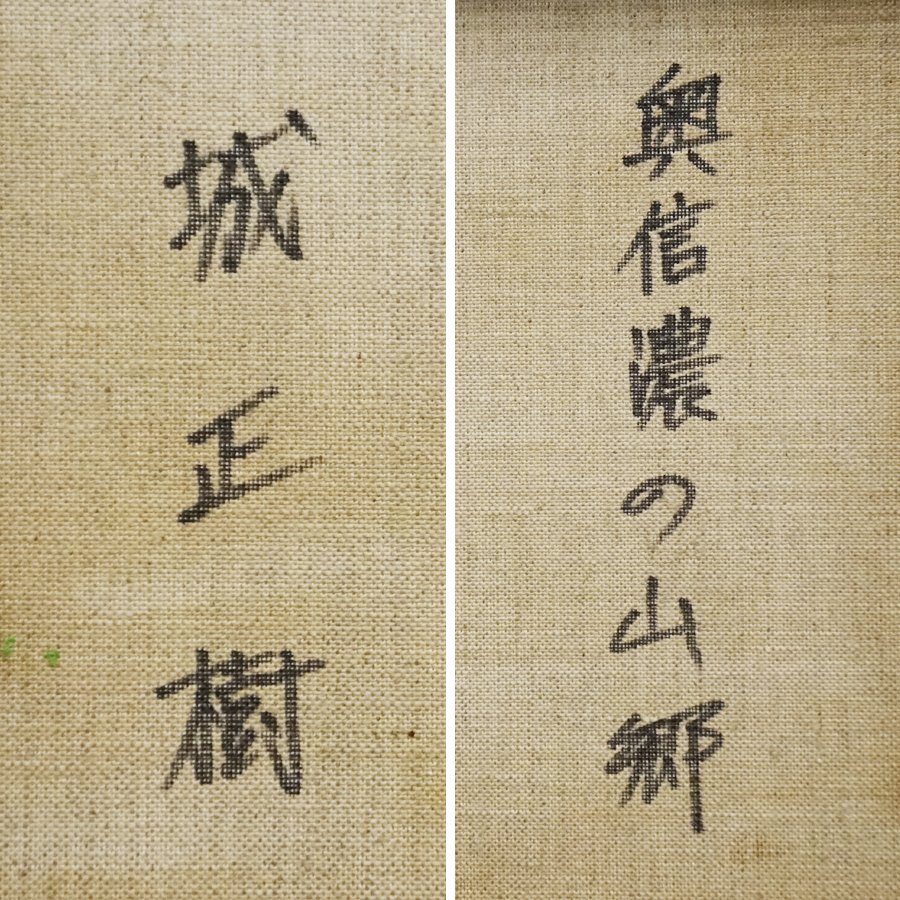 城正樹
奥信濃の山郷